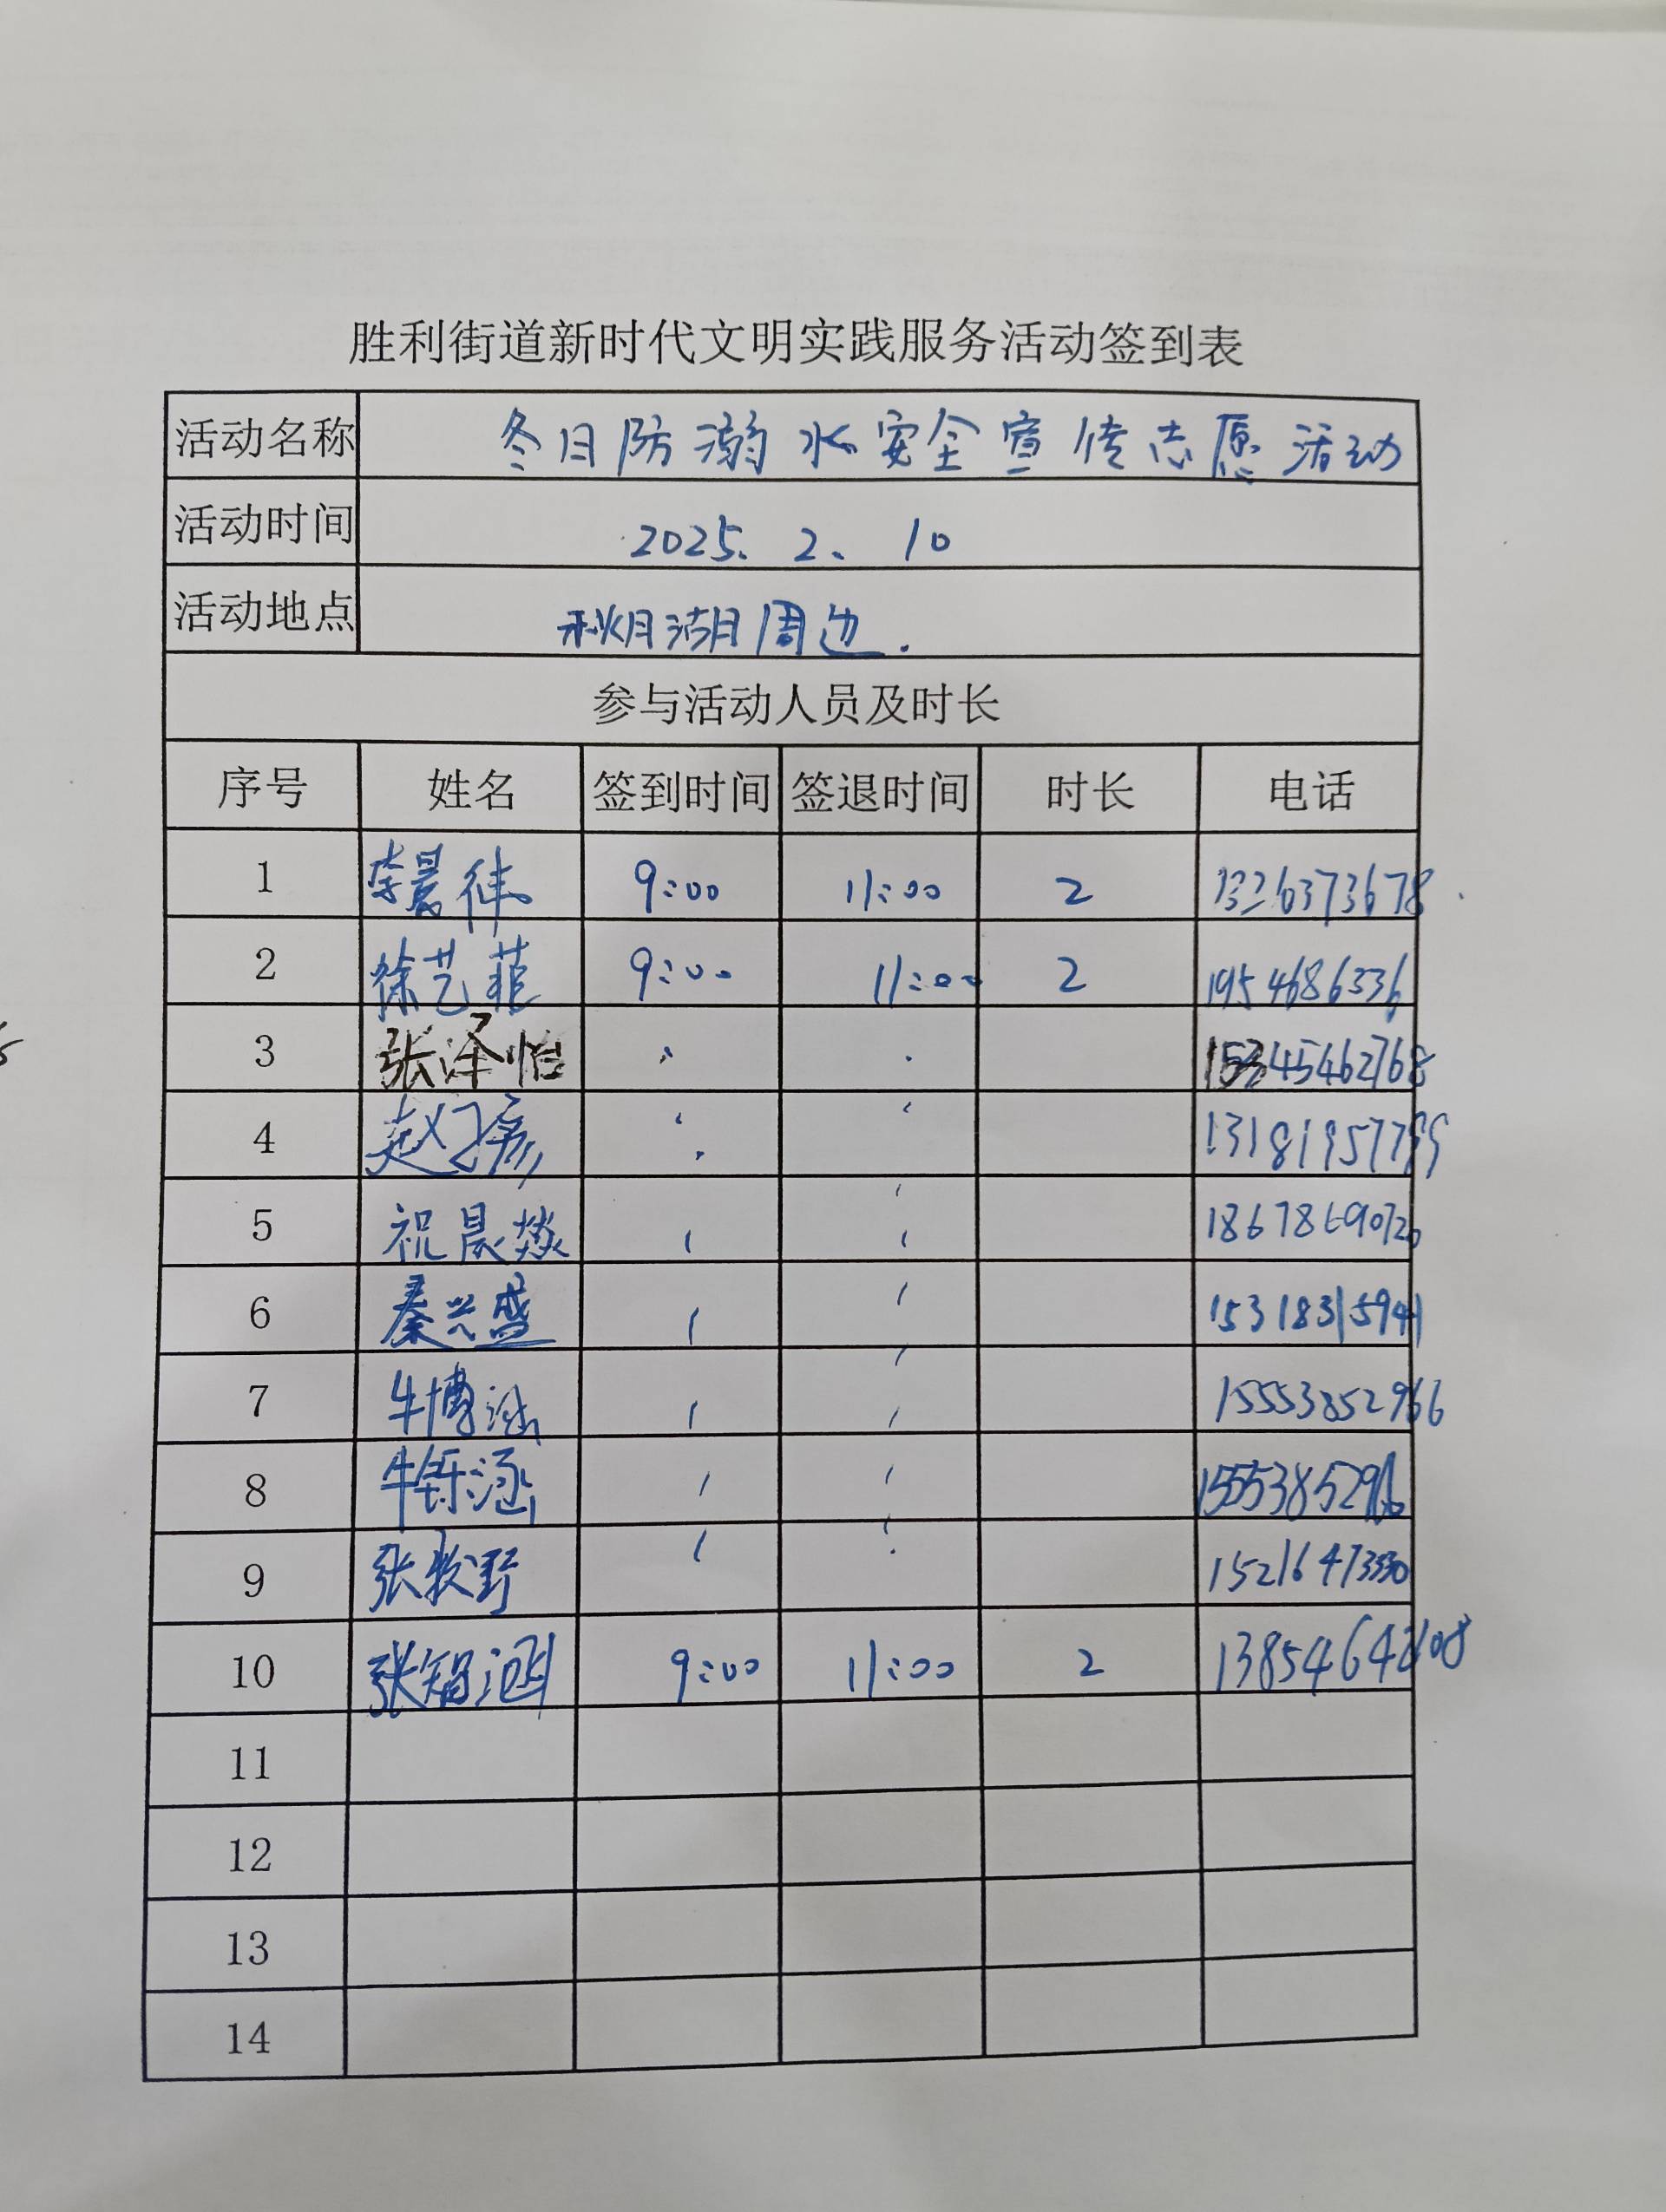 胜利街道新时代文明实践服务活动签到表
活动名称 冬日防溺水安全宣传志愿活动
活动时间 2025. 2. 10
活动地点 湖周边.
参与活动人员及时长
序号 姓名 签到时间 签退时间 时长 电话
1 李晨 9:00 11:00 2
2 徐艺菲 9:00 11:00 2
3 张泽怡 15345462768
4 赵 13181957799
5 祝晨燚 18678690720
6 秦兴盛 15318315941
7 牛博涵 15553852966
8 牛铄涵
9 张牧野 15216473330
10 张智涵 9:00 11:00 2
11
12
13
14